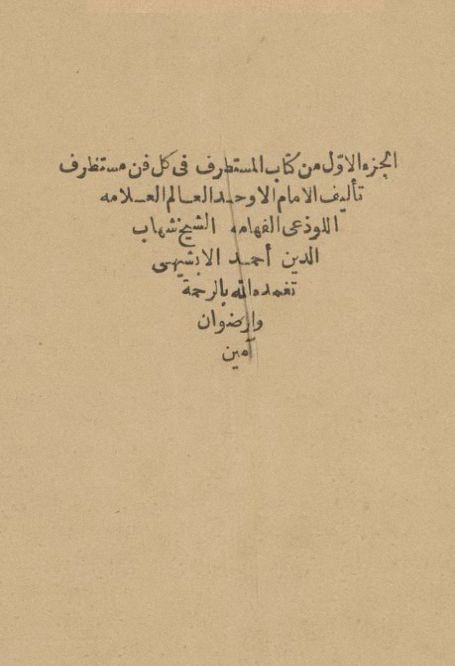 الجزء الاوّل من كتاب المستطرف فى كل فن مستظرف
تأليف الامام الاوحد العالم العلامه
اللوذعى الفهامه الشيخ شهاب
الدين أحمد الابشيهى
تغمده الله بالرحمة
والرضوان
آمين